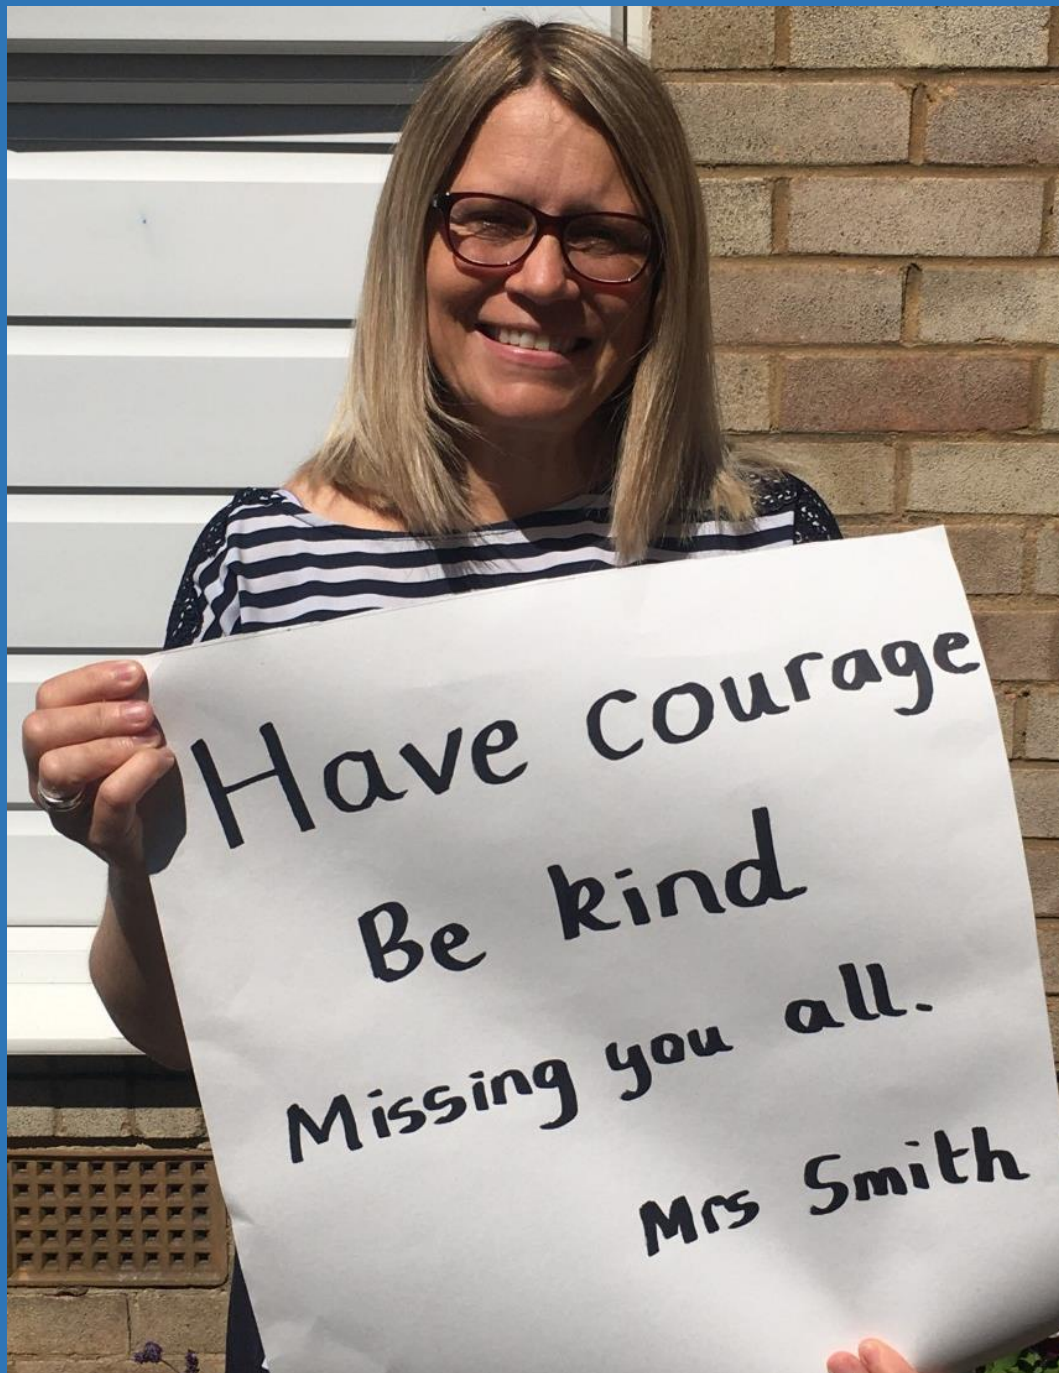 Have courage
Be kind
Missing you all.
Mrs Smith